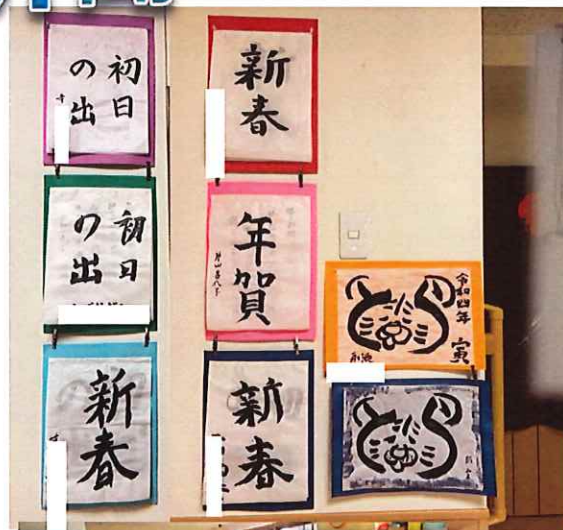 初日
の出
初日
の出
新春
新春
年賀
新春
令和四年
寅